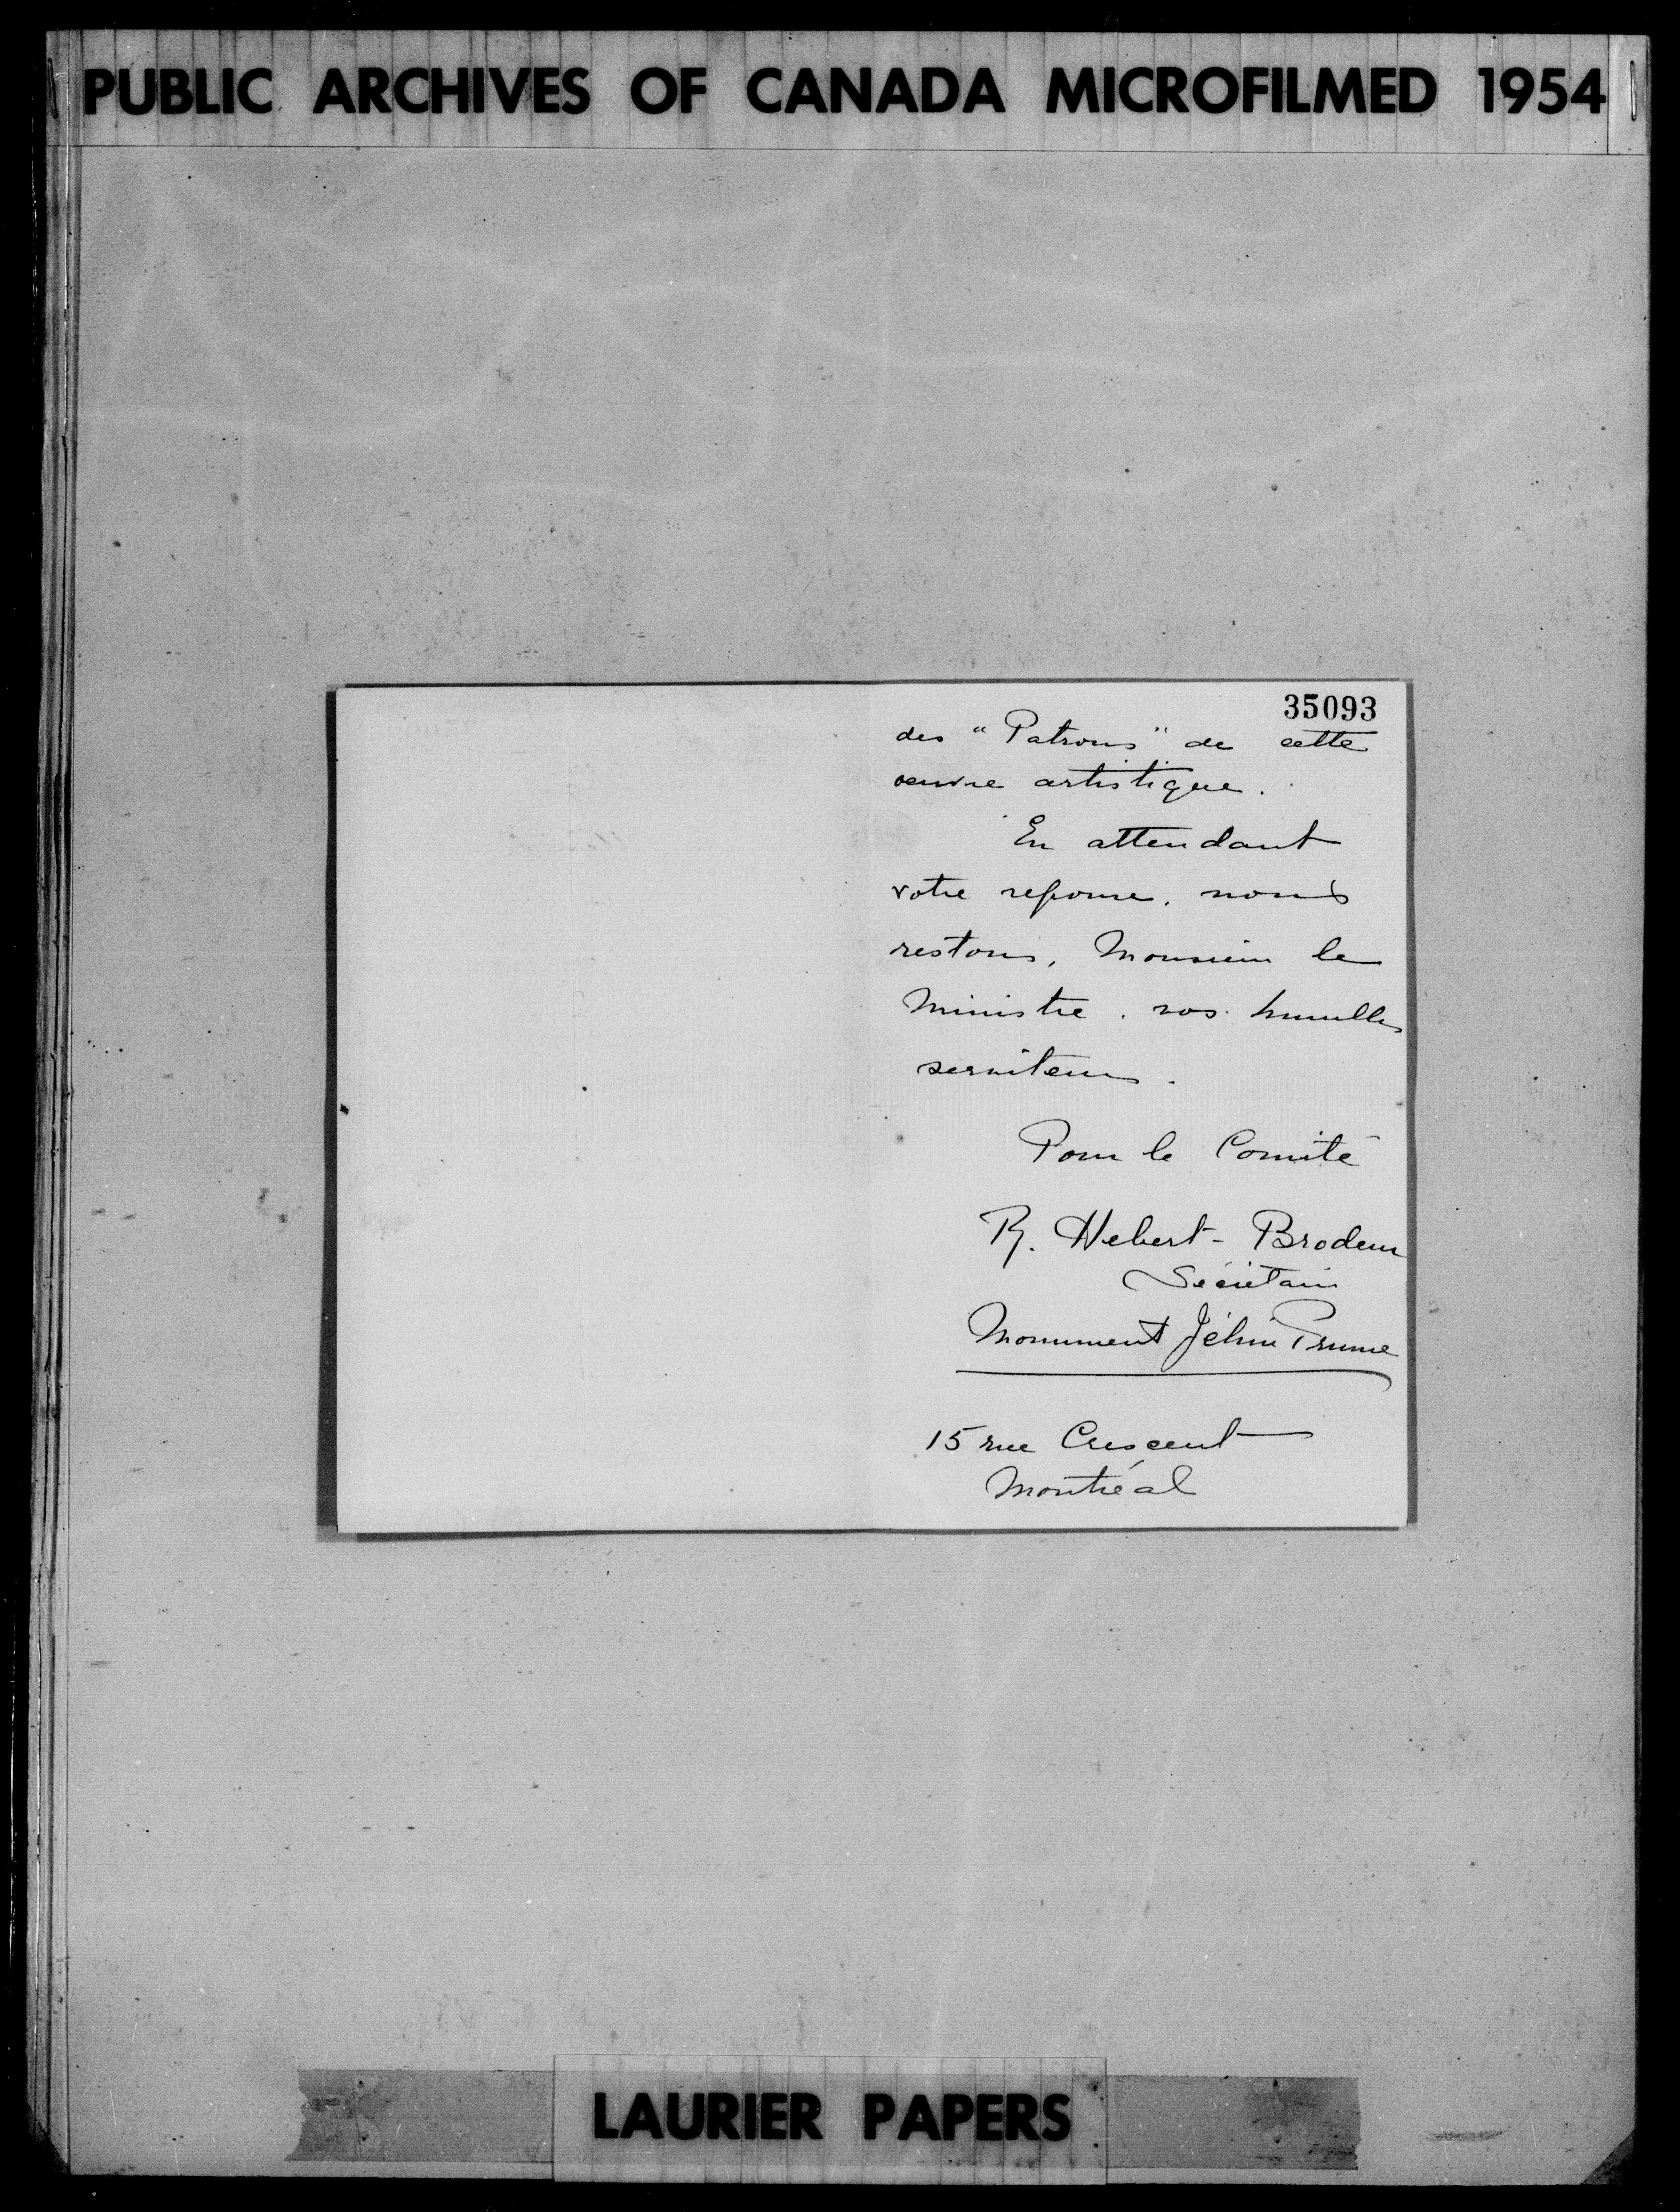 PUBLIC ARCHIVES OF CANADA MICROFILMED 1954
35093
des "Patrons" de cette
oeuvre artistique.
En attendant
votre reponse, nous
restons, Monsieur le
Ministre, vos humbles
serviteurs.
Pour le Comité
R. Hebert-Brodeur
Sécrétaire
Monument Jéhin Prume
15 rue Crescent
Montréal
LAURIER PAPERS